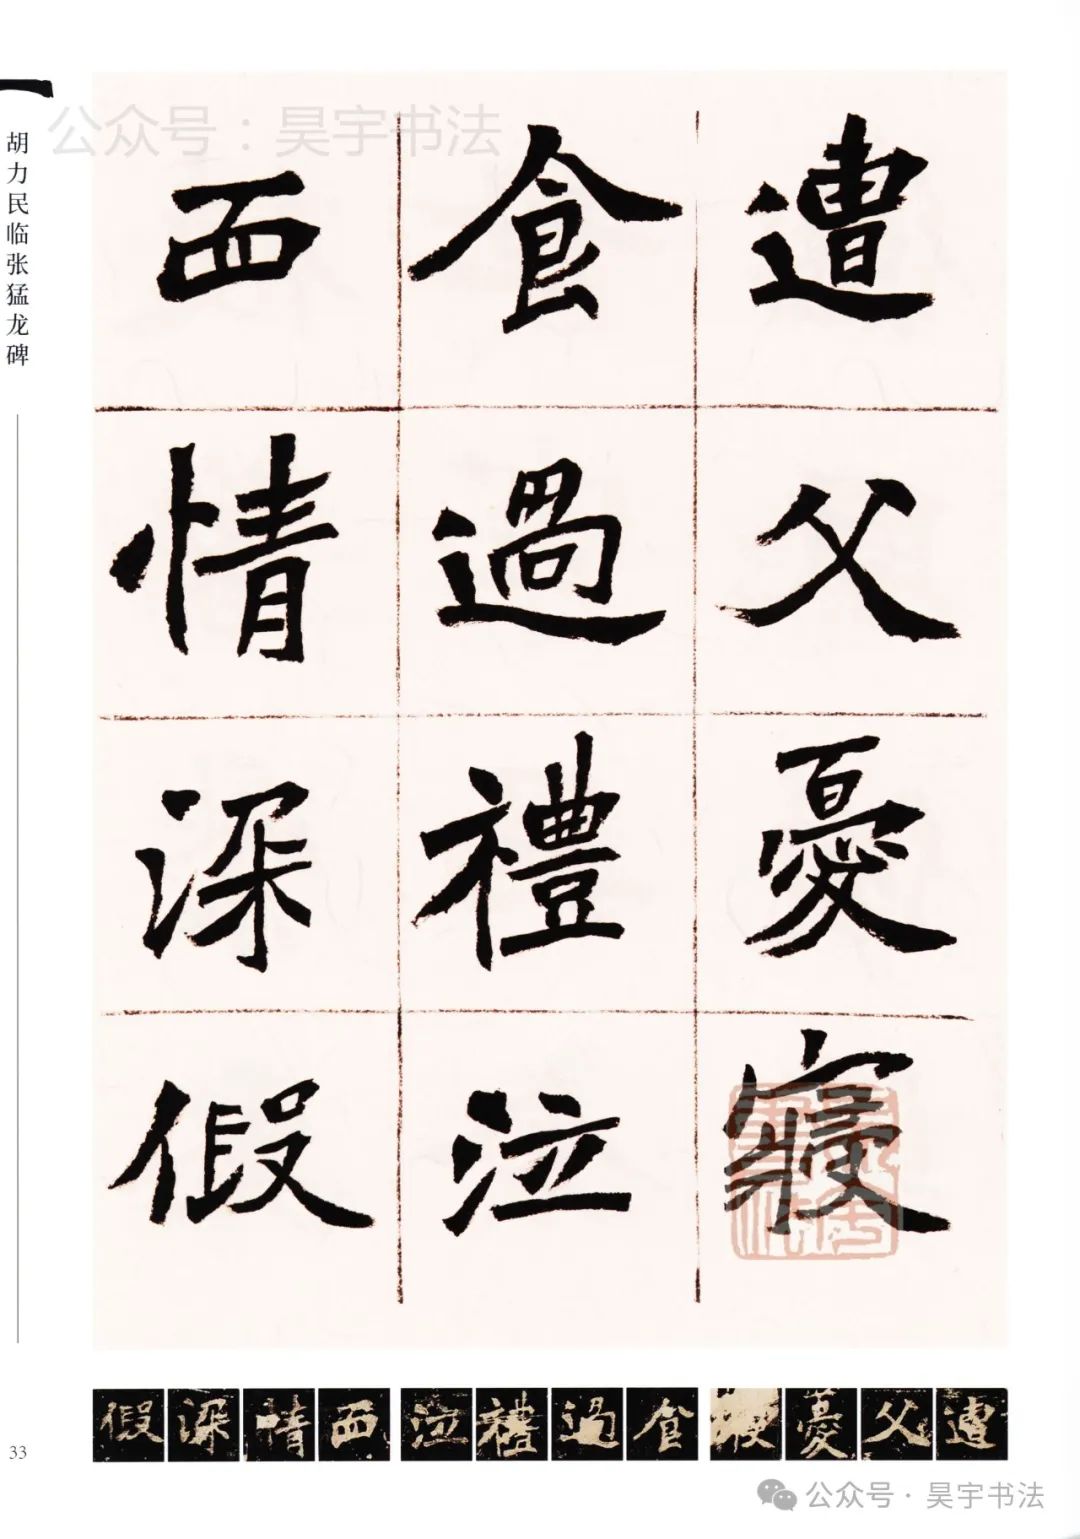 胡力民临张猛龙碑
公众号：昊宇书法
遭父憂寢
食過禮泣
面情深假
假深情面泣禮過食寢憂父遭
33
公众号·昊宇书法